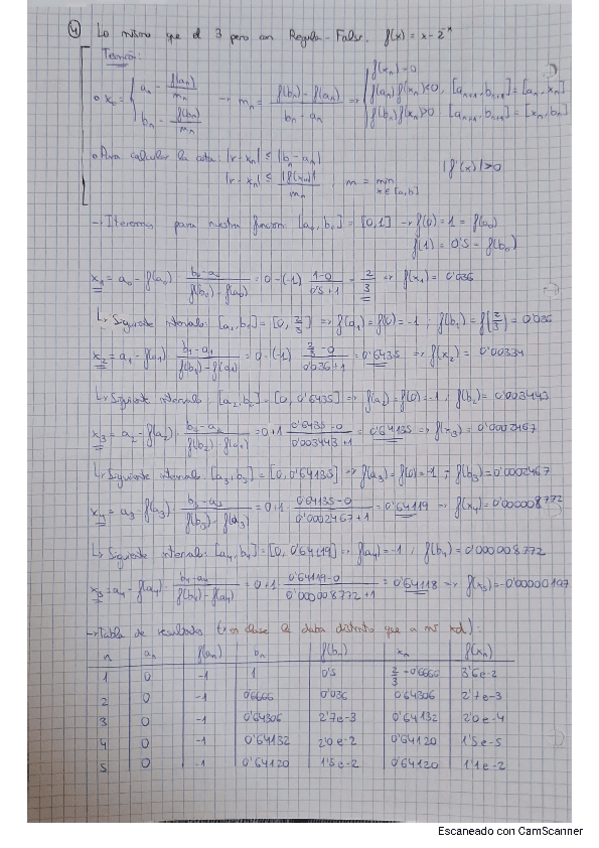 ④ Lo mismo que el 3 pero con Regula-Falsi. f(x) = x - 2^-x
Teoría:
o x_n = { a_n - f(a_n)/m_n ; b_n - f(b_n)/m_n → m_n = (f(b_n) - f(a_n))/(b_n - a_n) → { f(x_n) = 0 ; f(a_n) f(x_n) < 0, [a_n+1, b_n+1] = [a_n, x_n] ; f(b_n) f(x_n) > 0 [a_n+1, b_n+1] = [x_n, b_n]
o Para calcular la cota: |r - x_n| ≤ |b_n - a_n|
|r - x_n| ≤ |f(x_n)|/m_n ; m = min x∈[a,b] |f'(x)| > 0
→ Iteremos para nuestra función: [a_0, b_0] = [0,1] → f(0) = 1 = f(a_0)
f(1) = 0'5 = f(b_0)
x_1 = a_0 - f(a_0) · (b_0 - a_0)/(f(b_0) - f(a_0)) = 0 - (-1) · (1-0)/(0'5+1) = 2/3 ⇒ f(x_1) = 0'036
↳ Siguiente intervalo: [a_1, b_1] = [0, 2/3] ⇒ f(a_1) = f(0) = -1 ; f(b_1) = f(2/3) = 0'036
x_2 = a_1 - f(a_1) · (b_1 - a_1)/(f(b_1) - f(a_1)) = 0 - (-1) · (2/3 - 0)/(0'036+1) = 0'6435 ⇒ f(x_2) = 0'00334
↳ Siguiente intervalo: [a_2, b_2] = [0, 0'6435] ⇒ f(a_2) = f(0) = -1 ; f(b_2) = 0'003443
x_3 = a_2 - f(a_2) · (b_2 - a_2)/(f(b_2) - f(a_2)) = 0+1 · (0'6435-0)/(0'003443+1) = 0'64135 ⇒ f(x_3) = 0'0002467
↳ Siguiente intervalo: [a_3, b_3] = [0, 0'64135] ⇒ f(a_3) = f(0) = -1 ; f(b_3) = 0'0002467
x_4 = a_3 - f(a_3) · (b_3 - a_3)/(f(b_3) - f(a_3)) = 0+1 · (0'64135-0)/(0'0002467+1) = 0'64119 ⇒ f(x_4) = 0'000008772
↳ Siguiente intervalo: [a_4, b_4] = [0, 0'64119] ⇒ f(a_4) = -1 ; f(b_4) = 0'000008772
x_5 = a_4 - f(a_4) · (b_4 - a_4)/(f(b_4) - f(a_4)) = 0+1 · (0'64119-0)/(0'000008772+1) = 0'64118 ⇒ f(x_5) = -0'00000107
→ Tabla de resultados (en clase le daba distinto que a mí xd):
n a_n f(a_n) b_n f(b_n) x_n f(x_n)
1 0 -1 1 0'5 2/3 = 0'6666 3'6e-2
2 0 -1 0'6666 0'036 0'64306 2'7e-3
3 0 -1 0'64306 2'7e-3 0'64132 2'0e-4
4 0 -1 0'64132 2'0e-2 0'64120 1'5e-5
5 0 -1 0'64120 1'5e-2 0'64120 1'1e-2
Escaneado con CamScanner